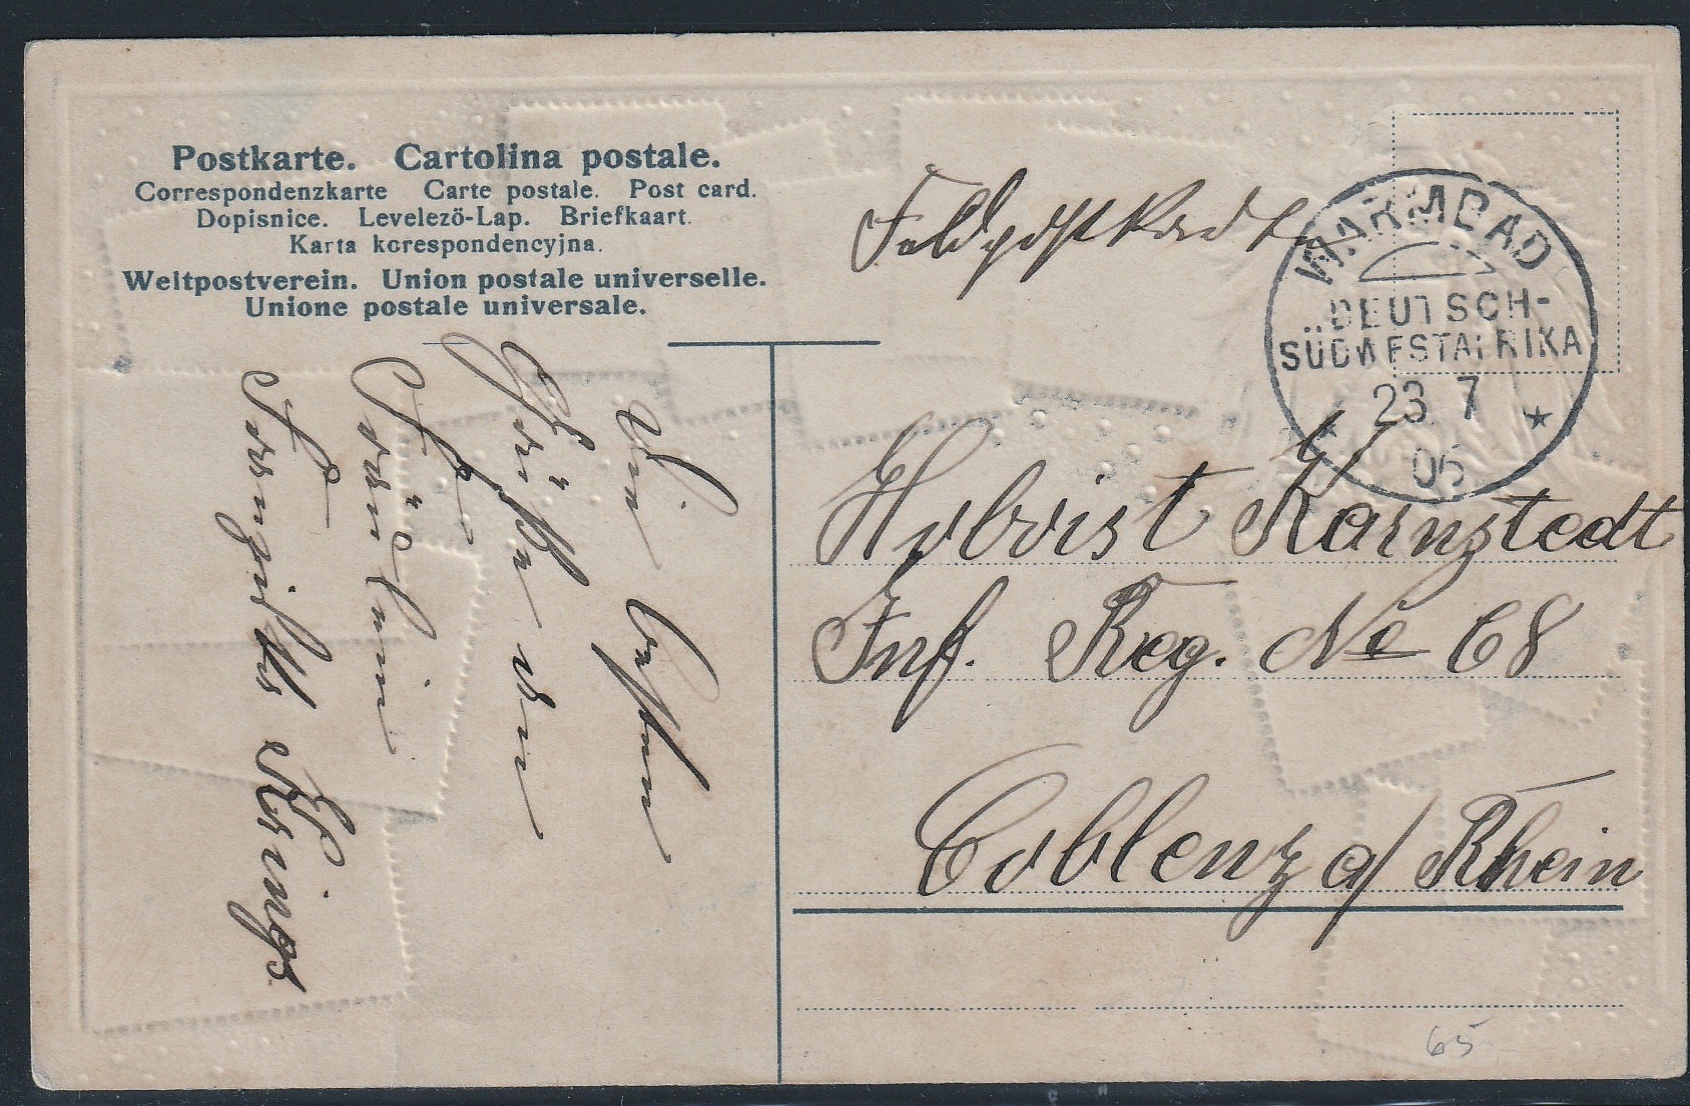 Postkarte. Cartolina postale.
Correspondenzkarte Carte postale. Post card.
Dopisnice. Levelezö-Lap. Briefkaart.
Karta korespondencyjna.
Weltpostverein. Union postale universelle.
Unione postale universale.
Feldpostkarte
WARMBAD
DEUTSCH-
SÜDWESTAFRIKA
23 7
06
Hoboist Karnstedt
Inf. Reg. No 68
Coblenz a/ Rhein
Die besten
Grüße von
65